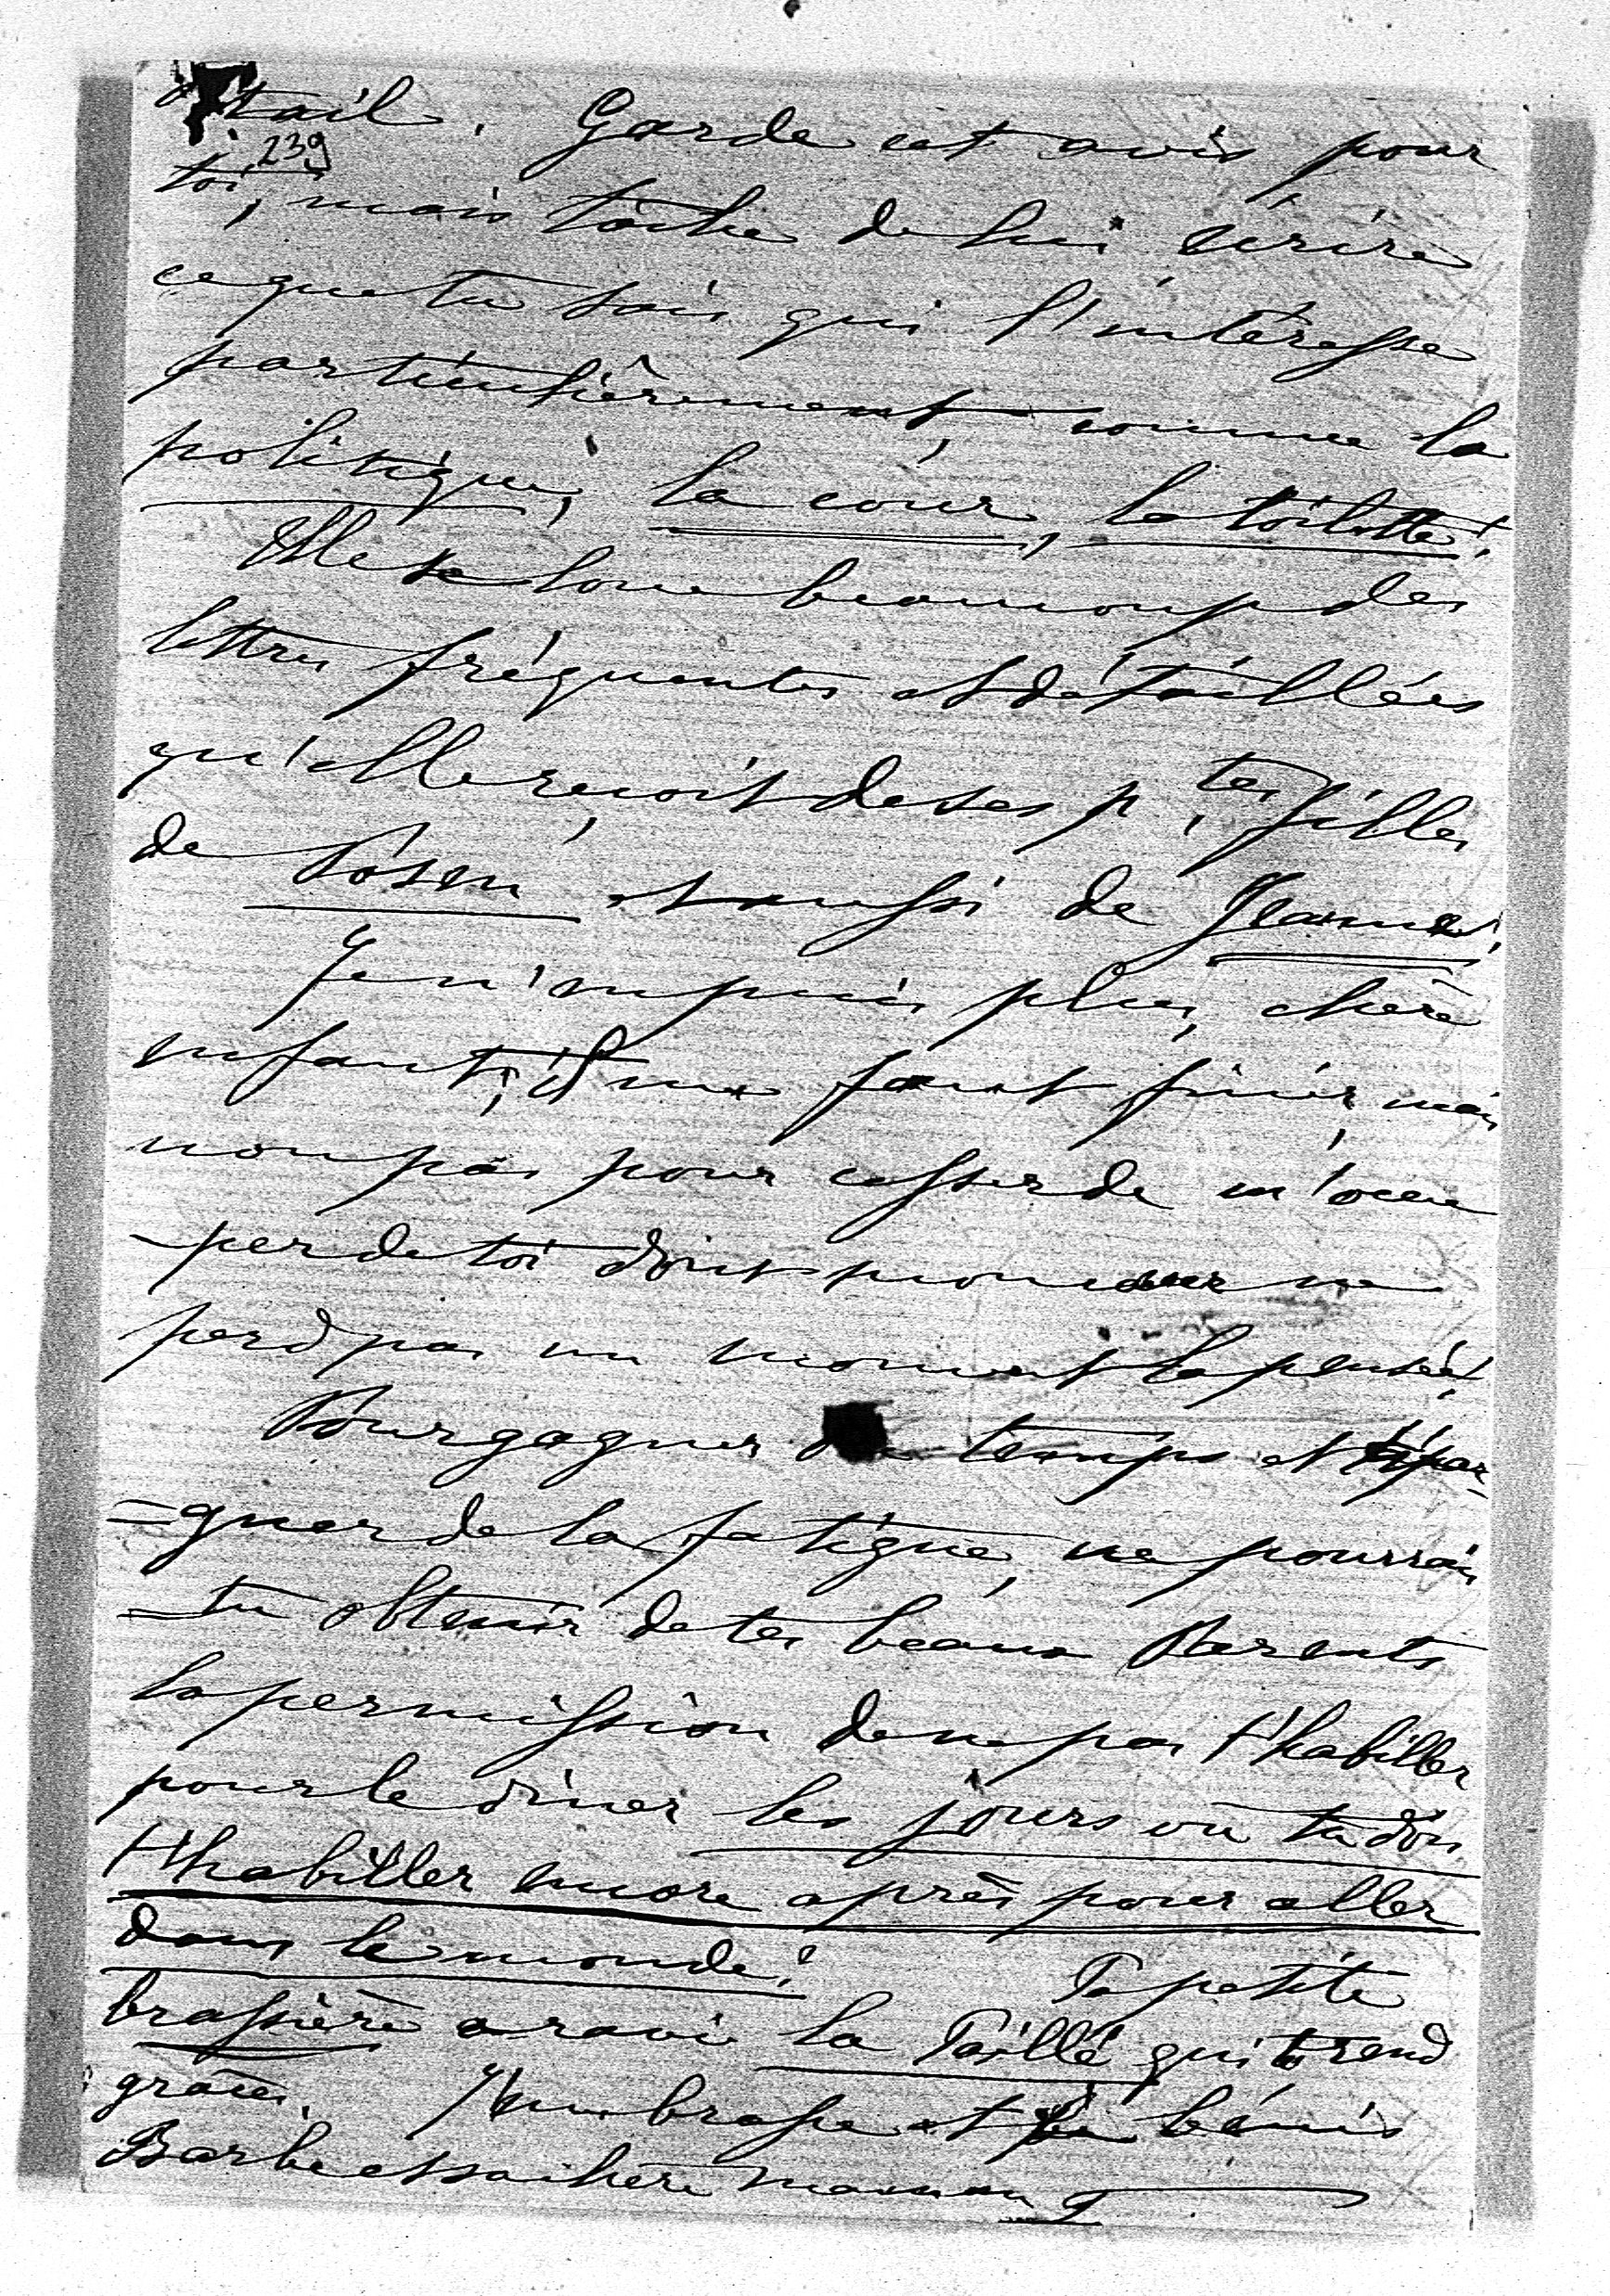 tail. Garde cet avis pour
239
toi, mais tâche de lui écrire
ce que tu sais qui l'intéresse
particulièrement, comme la
politique, la cour, la toilette.
Elle se loue beaucoup des
lettres fréquentes et détaillées
qu'elle reçoit de ses p.tes filles
de Posen et aussi de Jeanne.
Je n'en puis plus, chère
enfant, il me faut finir, mais
non pas pour cesser de m'occu
-per de toi dont mon cœur ne
perd pas un moment la pensée.
Pour gagner du temps et t'épar-
=gner de la fatigue, ne pourrais
-tu obtenir de tes beaux Parents
la permission de ne pas t'habiller
pour le dîner les jours où tu dois
t'habiller encore après pour aller
dans le monde? Ta petite
brassière a ravi la Paillé qui te rend
grâces. J'embrasse et bénis
Barbe et sa chère maman